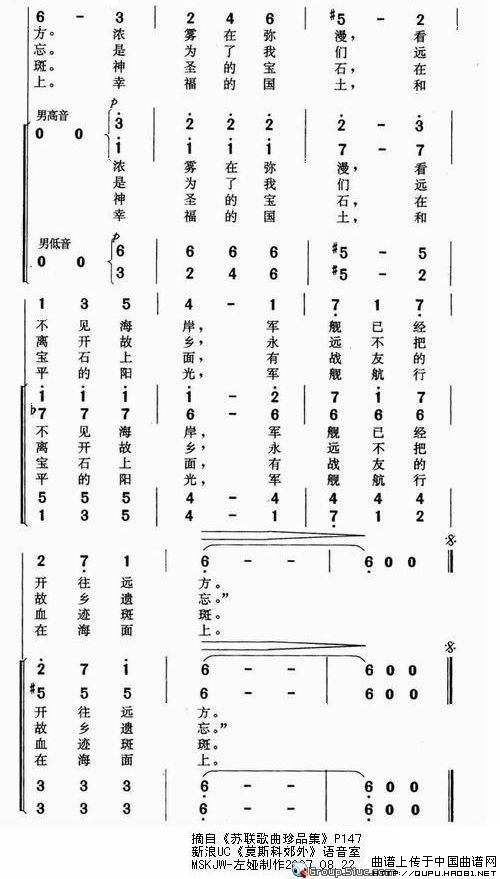 6 - 3 | 2 4 6 | #5 - 2
方。 浓 雾 在 弥 漫， 看
忘。 是 为 了 我 们 远
斑。 神 圣 的 宝 石， 在
上。 幸 福 的 国 土， 和
男高音 p
0 0 3 | 2 2 2 | 2 - 3
1 | 1 1 1 | 7 - 7
浓 雾 在 弥 漫， 看
是 为 了 我 们 远
神 圣 的 宝 石， 在
幸 福 的 国 土， 和
男低音 p
0 0 6 | 6 6 6 | #5 - 5
3 | 2 4 6 | #5 - 2
1 3 5 | 4 - 1 | 7 1 7
不 见 海 岸， 军 舰 已 经
离 开 故 乡， 永 远 不 把
宝 石 上 面， 有 战 友 的
平 的 阳 光， 军 舰 航 行
1 1 1 | 1 - 2 | 7 1 7
b7 7 7 | 6 - 6 | 6 6 6
不 见 海 岸， 军 舰 已 经
离 开 故 乡， 永 远 不 把
宝 石 上 面， 有 战 友 的
平 的 阳 光， 军 舰 航 行
5 5 5 | 4 - 4 | 4 4 4
1 3 5 | 4 - 1 | 7 1 2
2 7 1 | 6 - - | 6 0 0
开 往 远 方。
故 乡 遗 忘。”
血 迹 斑 斑。
在 海 面 上。
2 7 1 | 6 - - | 6 0 0
#5 5 5 | 6 - - | 6 0 0
开 往 远 方。
故 乡 遗 忘。”
血 迹 斑 斑。
在 海 面 上。
3 3 3 | 6 - - | 6 0 0
3 3 3 | 6 - - | 6 0 0
摘自《苏联歌曲珍品集》P147
新浪UC《莫斯科郊外》语音室
MSKJW-左娅制作2007.08.22
曲谱上传于中国曲谱网